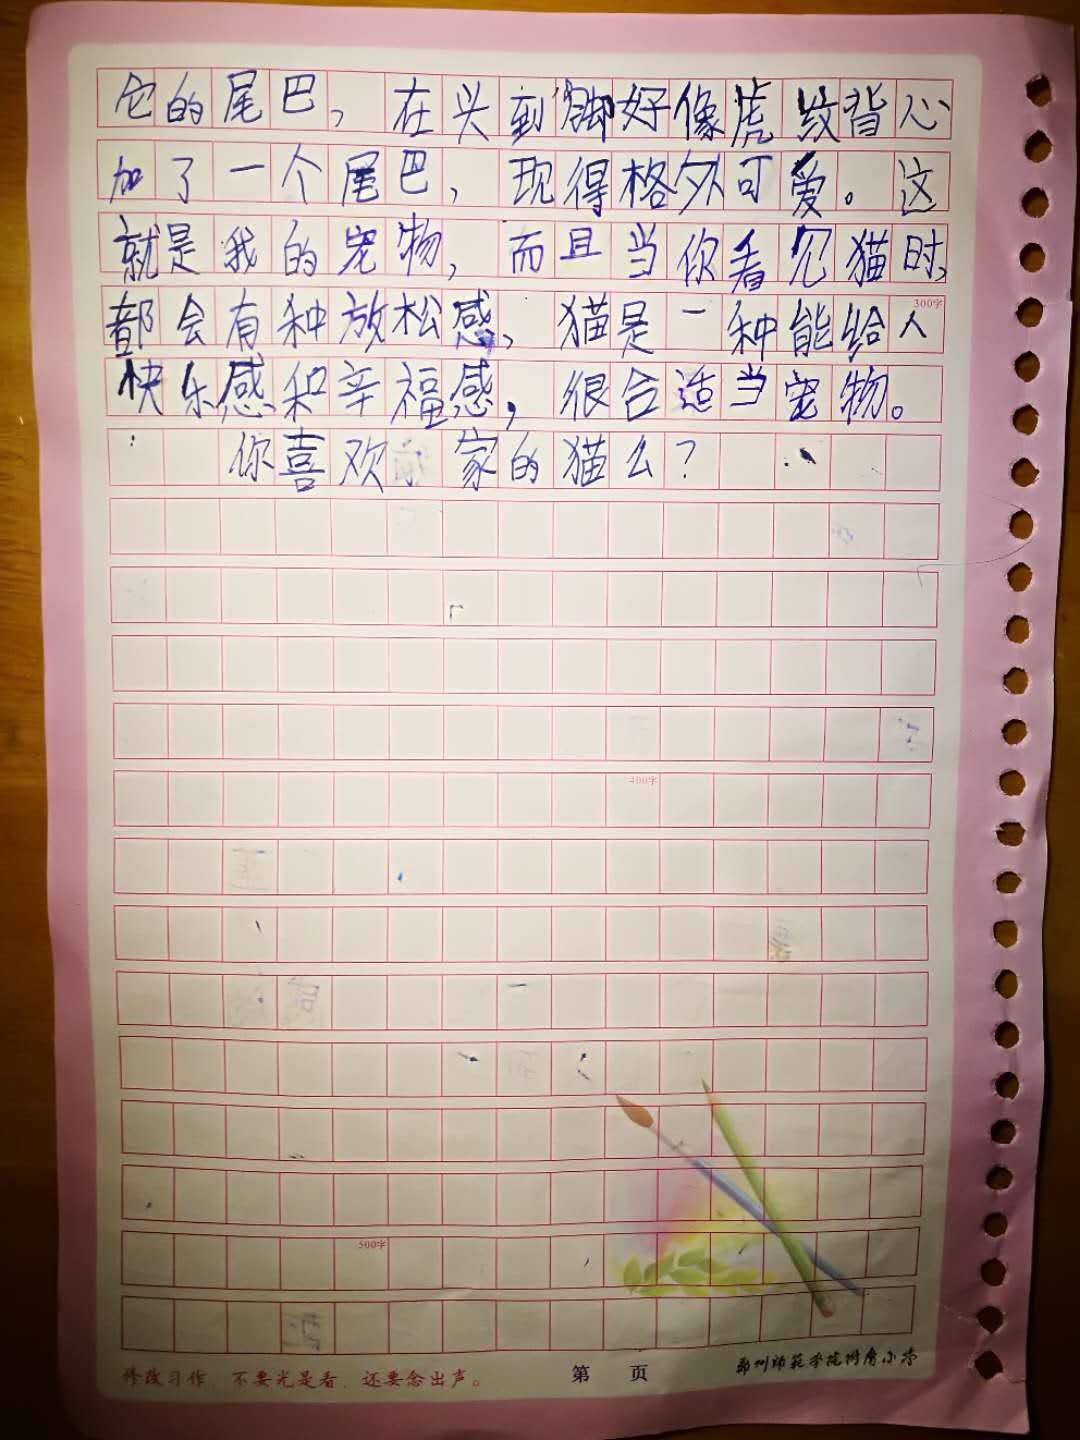 它的尾巴，在头到脚好像虎纹背心
加了一个尾巴，现得格外可爱。这
就是我的宠物，而且当你看见猫时，
都会有种放松感，猫是一种能给人
300字
快乐感和辛福感，很合适当宠物。
你喜欢家的猫么？
400字
500字
修改习作，不要光是看，还要念出声。
第 页
郑州师范学院附属小学